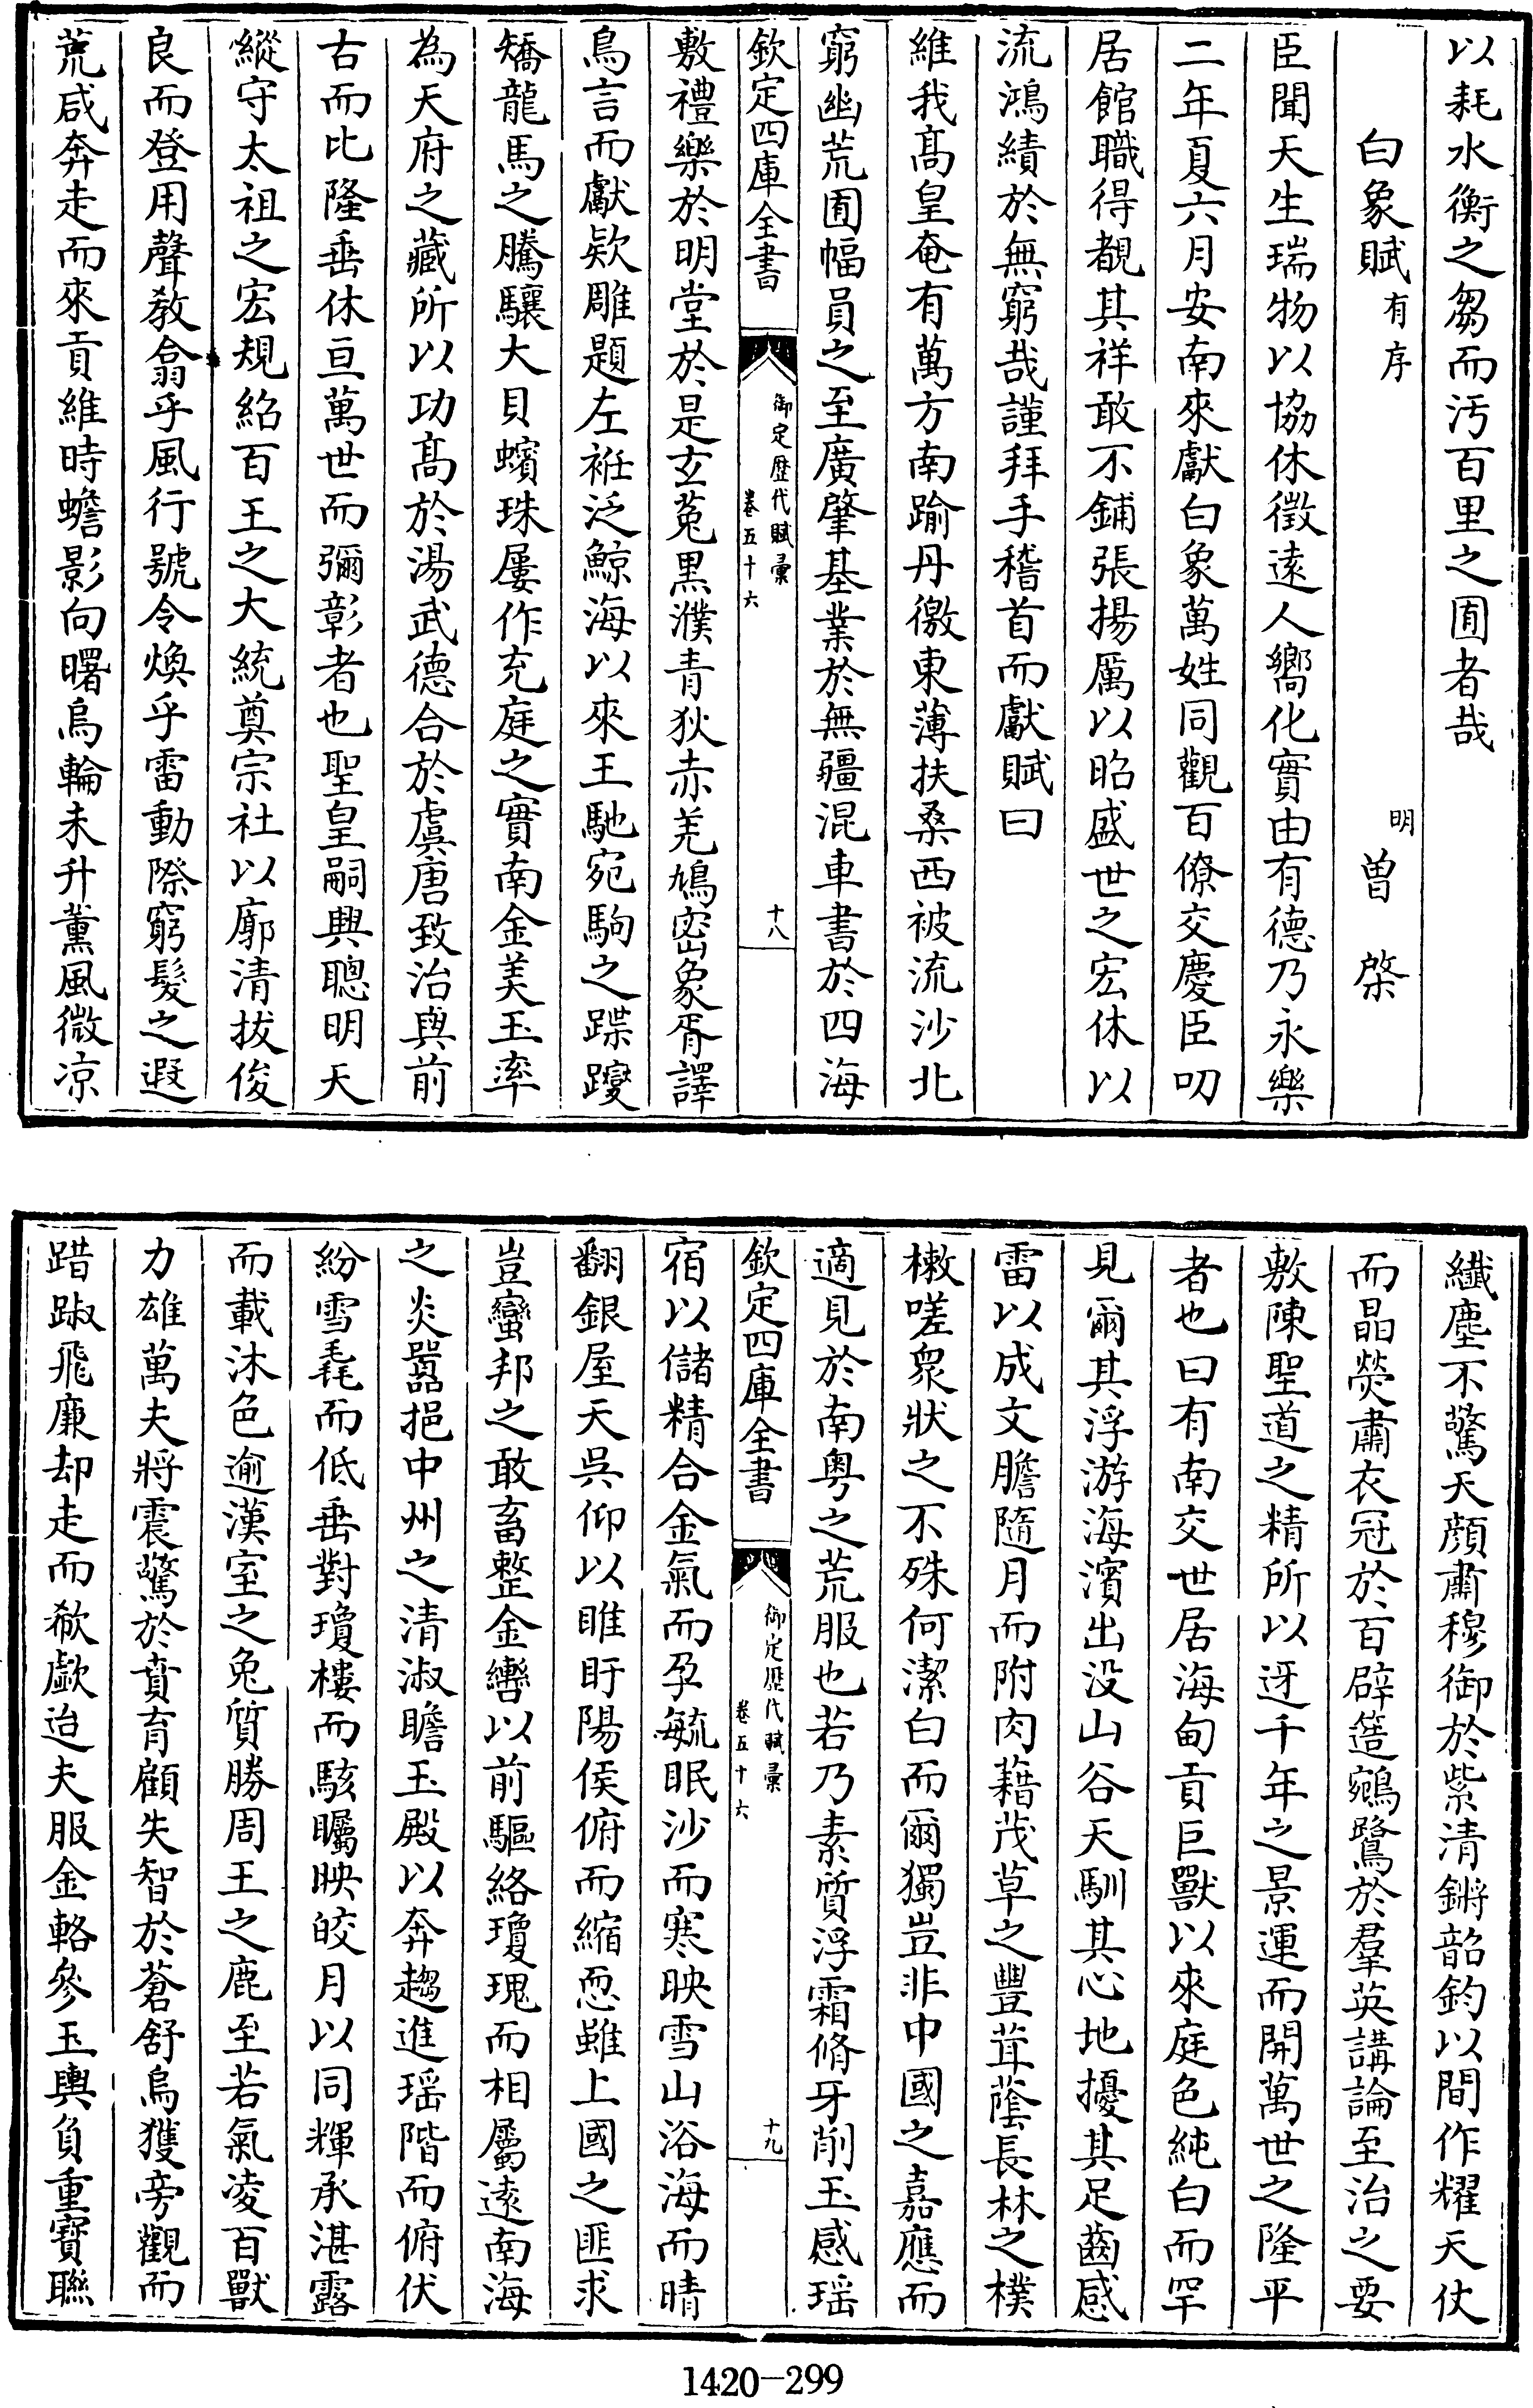 以耗水衡之芻而污百里之囿者哉
白象賦有序 明 曽棨
臣聞天生瑞物以協休徵遠人嚮化實由有德乃永樂
二年夏六月安南來獻白象萬姓同觀百僚交慶臣叨
居館職得覩其祥敢不鋪張揚厲以昭盛世之宏休以
流鴻績於無窮哉謹拜手稽首而獻賦曰
維我髙皇奄有萬方南踰丹徼東薄扶桑西被流沙北
窮幽荒囿幅員之至廣肇基業於無疆混車書於四海
欽定四庫全書 御定歴代賦彙 卷五十六 十八
敷禮樂於明堂於是玄菟黒濮青狄赤羌鳩密象胥譯
鳥言而獻欵雕題左袵泛鯨海以來王馳宛駒之蹀躞
矯龍馬之騰驤大貝蠙珠屢作充庭之實南金美玉率
為天府之藏所以功髙於湯武德合於虞唐致治與前
古而比隆垂休亘萬世而彌彰者也聖皇嗣興聰明天
縱守太祖之宏規紹百王之大統奠宗社以廓清拔俊
良而登用聲教翕乎風行號令煥乎雷動際窮髮之遐
荒咸奔走而來貢維時蟾影向曙烏輪未升薰風微凉
纖塵不驚天顔肅穆御於紫清鏘韶鈞以間作耀天仗
而晶熒肅衣冠於百辟簉鵷鷺於羣英講論至治之要
敷陳聖道之精所以迓千年之景運而開萬世之隆平
者也曰有南交世居海甸貢巨獸以來庭色純白而罕
見爾其浮游海濱出没山谷天馴其心地擾其足齒感
雷以成文膽隨月而附肉藉茂草之豐茸蔭長林之樸
樕嗟衆狀之不殊何潔白而爾獨豈非中國之嘉應而
適見於南粤之荒服也若乃素質浮霜脩牙削玉感瑶
欽定四庫全書 御定歴代賦彙 卷五十六 十九
宿以儲精合金氣而孕毓眠沙而寒映雪山浴海而晴
翻銀屋天吳仰以睢盱陽侯俯而縮恧雖上國之匪求
豈蠻邦之敢畜整金轡以前驅絡瓊瑰而相屬逺南海
之炎嚣挹中州之清淑瞻玉殿以奔趨進瑶階而俯伏
紛雪毳而低垂對瓊樓而駭矚映皎月以同輝承湛露
而載沐色逾漢室之兔質勝周王之鹿至若氣凌百獸
力雄萬夫將震驚於賁育顧失智於蒼舒烏獲旁觀而
踖踧飛廉却走而欷歔迨夫服金輅參玉輿負重寳聯